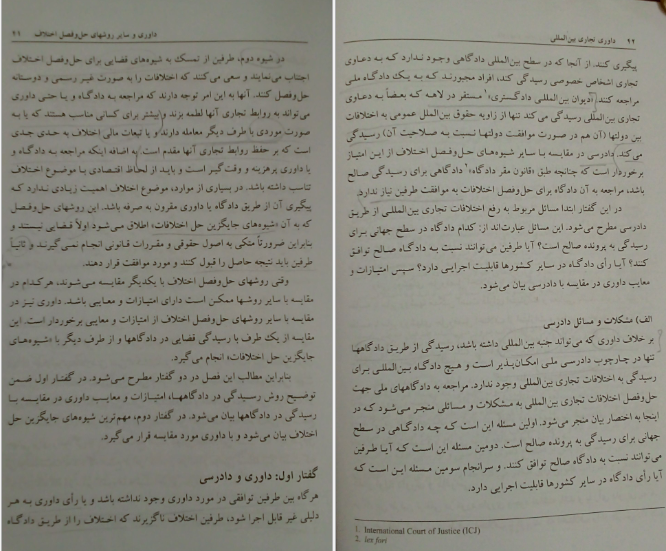 داوری و سایر روشهای حل‌وفصل اختلاف ۲۱
در شیوه دوم، طرفین از تمسک به شیوه‌های قضایی برای حل‌وفصل اختلاف
اجتناب می‌نمایند و سعی می‌کنند که اختلافات را به صورت غیر رسمی و دوستانه
حل‌وفصل کنند. آنها به این امر توجه دارند که مراجعه به دادگاه و یا حتی داوری
می‌تواند به روابط تجاری آنها لطمه بزند و بیشتر برای کسانی مناسب هستند که یا به
صورت موردی با طرف دیگر معامله دارند و یا تبعات مالی اختلاف به حدی جدی
است که بر حفظ روابط تجاری آنها مقدم است. به اضافه اینکه مراجعه به دادگاه و
یا داوری پرهزینه و وقت‌گیر است و باید از لحاظ اقتصادی با موضوع اختلاف
تناسب داشته باشد. در بسیاری از موارد، موضوع اختلاف اهمیت زیادی ندارد که
پیگیری آن از طریق دادگاه یا داوری مقرون به صرفه باشد. این روشهای حل‌وفصل
که به آن «شیوه‌های جایگزین حل اختلافات» اطلاق می‌شود اولاً قضایی نیستند و
بنابراین ضرورتاً متکی به اصول حقوقی و مقررات قانونی انجام نمی‌گیرند و ثانیاً
طرفین باید نتیجه حاصل را قبول کنند و مورد موافقت قرار دهند.
وقتی روشهای حل‌وفصل اختلاف با یکدیگر مقایسه می‌شوند، هرکدام در
مقایسه با سایر روشها ممکن است دارای امتیازات و معایبی باشد. داوری نیز در
مقایسه با سایر روشهای حل‌وفصل اختلاف از امتیازات و معایبی برخوردار است. این
مقایسه از یک طرف با رسیدگی قضایی در دادگاهها و از طرف دیگر با «شیوه‌های
جایگزین حل اختلافات» انجام می‌گیرد.
بنابراین مطالب این فصل در دو گفتار مطرح می‌شود. در گفتار اول ضمن
توضیح روش رسیدگی در دادگاهها، امتیازات و معایب داوری در مقایسه با
رسیدگی در دادگاهها بیان می‌شود. در گفتار دوم، مهم‌ترین شیوه‌های جایگزین حل
اختلاف بیان می‌شود و با داوری مورد مقایسه قرار می‌گیرد.
گفتار اول: داوری و دادرسی
هرگاه بین طرفین توافقی در مورد داوری وجود نداشته باشد و یا رأی داوری به هر
دلیلی غیر قابل اجرا شود، طرفین اختلاف ناگزیرند که اختلاف را از طریق دادگاه
۲۲ داوری تجاری بین‌المللی
پیگیری کنند. از آنجا که در سطح بین‌المللی دادگاهی وجود ندارد که به دعاوی
تجاری اشخاص خصوصی رسیدگی کند، افراد مجبورند که به یک دادگاه ملی
مراجعه کنند. «دیوان بین‌المللی دادگستری»۱ مستقر در لاهه که بعضاً به دعاوی
بین‌المللی رسیدگی می‌کند تنها از زاویه حقوق بین‌الملل عمومی به اختلافات
بین دولتها (آن هم در صورت موافقت دولتها نسبت به صلاحیت آن) رسیدگی
می‌کند. دادرسی در مقایسه با سایر شیوه‌های حل‌وفصل اختلاف از این امتیاز
برخوردار است که چنانچه طبق «قانون مقر دادگاه»۲ دادگاهی برای رسیدگی صالح
باشد، مراجعه به آن دادگاه برای حل‌وفصل اختلافات به موافقت طرفین نیاز ندارد.
در این گفتار ابتدا مسائل مربوط به رفع اختلافات تجاری بین‌المللی از طریق
دادرسی مطرح می‌شود. این مسائل عبارت‌اند از: کدام دادگاه در سطح جهانی برای
رسیدگی به پرونده صالح است؟ آیا طرفین می‌توانند نسبت به دادگاه صالح توافق
کنند؟ آیا رأی دادگاه در سایر کشورها قابلیت اجرایی دارد؟ سپس امتیازات و
معایب داوری در مقایسه با دادرسی بیان می‌شود.
الف) مشکلات و مسائل دادرسی
بر خلاف داوری که می‌تواند جنبه بین‌المللی داشته باشد، رسیدگی از طریق دادگاهها
تنها در چارچوب دادرسی ملی امکان‌پذیر است و هیچ دادگاه بین‌المللی برای
رسیدگی به اختلافات تجاری بین‌المللی وجود ندارد. مراجعه به دادگاههای ملی جهت
حل‌وفصل اختلافات تجاری بین‌المللی به مشکلات و مسائلی منجر می‌شود که در
اینجا به اختصار بیان می‌شود. اولین مسئله این است که چه دادگاهی در سطح
جهانی برای رسیدگی به پرونده صالح است. دومین مسئله این است که آیا طرفین
می‌توانند نسبت به دادگاه صالح توافق کنند. و سرانجام سومین مسئله این است که
آیا رأی دادگاه در سایر کشورها قابلیت اجرایی دارد.
1. International Court of Justice (ICJ)
2. lex fori